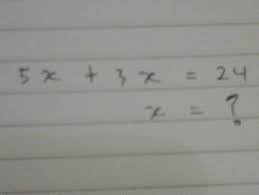 5x + 3x = 24
x = ?